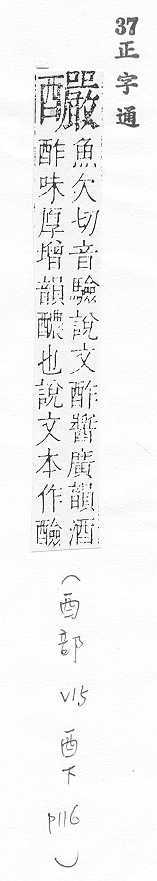 37正字通
釅
魚欠切音驗說文酢醬廣韻酒
酢味厚增韻醲也說文本作醶
(酉部 V15 酉下 p116)